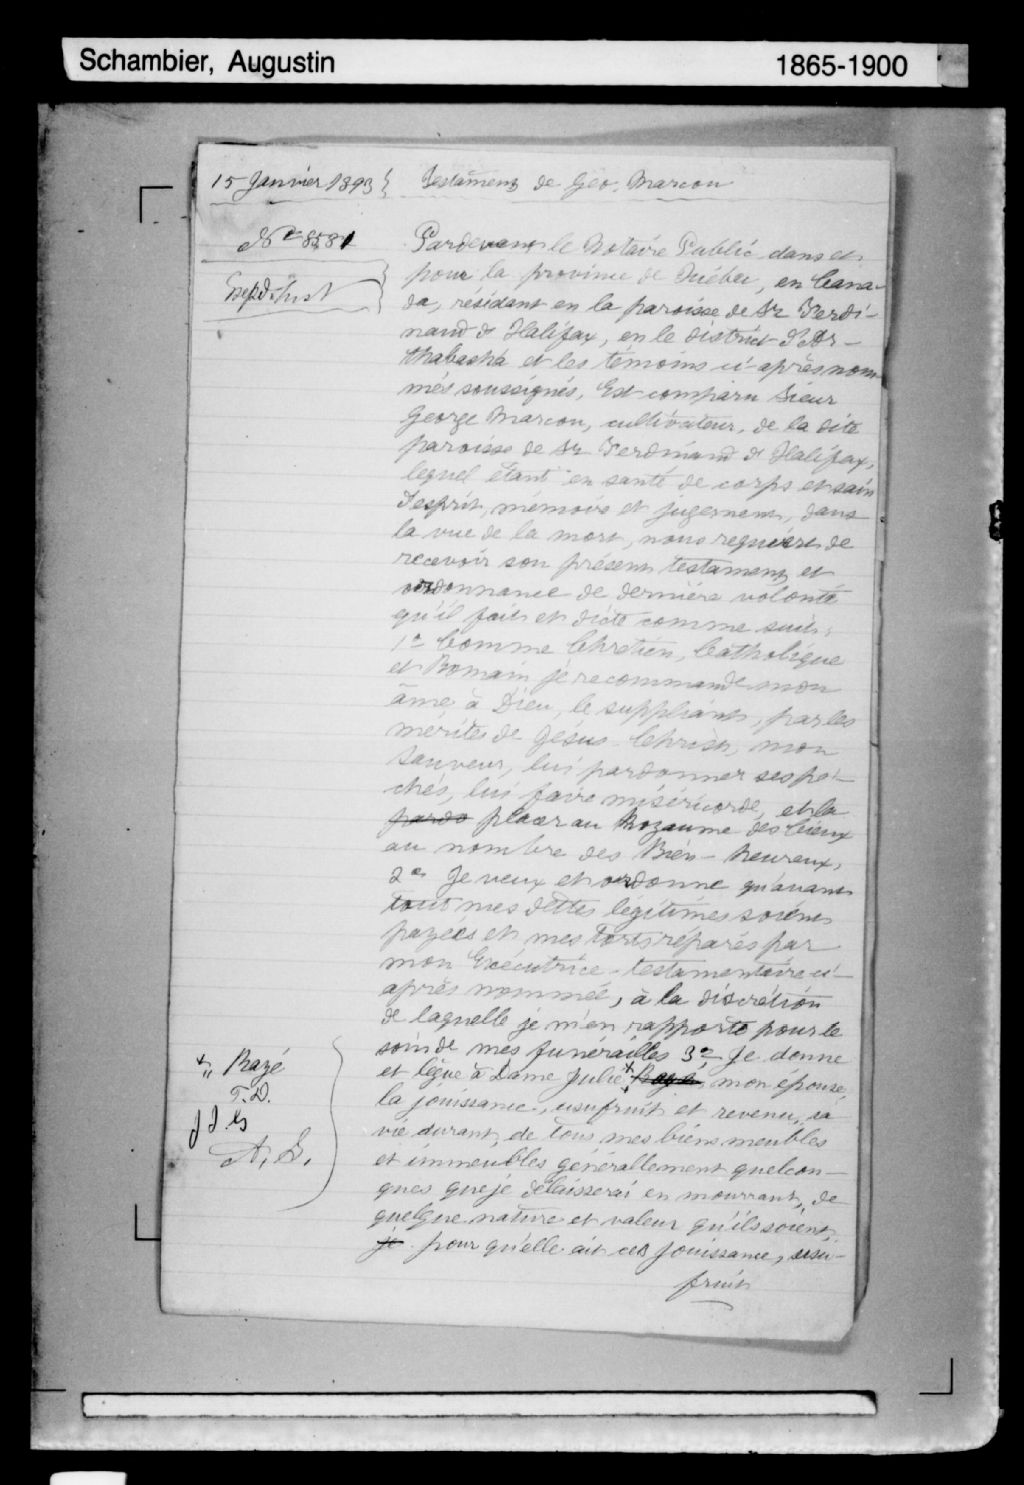 Schambier, Augustin 1865-1900
15 Janvier 1893 Testament de Geo. Marcou
No 8581
Expd. Inst
Pardevant le Notaire Public dans et
pour la province de Québec, en Cana-
da, résidant en la paroisse de St Ferdi-
nand d'Halifax, en le district d'Ar-
thabaska et les témoins ci-après nom-
més soussignés, Est comparu Sieur
George Marcou, cultivateur, de la dite
paroisse de St Ferdinand d'Halifax,
lequel étant en santé de corps et sain
d'esprit, mémoire et jugement, dans
la vue de la mort, nous requiert de
recevoir son présent testament et
ordonnance de dernière volonté
qu'il fait et dicte comme suit:
1o Comme Chrétien, Catholique
et Romain je recommande mon
âme à Dieu, le suppliant, par les
mérites de Jésus-Christ, mon
Sauveur, lui pardonner ses pé-
chés, lui faire miséricorde, et la
pardo placer au Royaume des Cieux
au nombre des Bien-heureux,
2o Je veux et ordonne qu'avant
tout mes dettes légitimes soient
payées et mes torts réparés par
mon Exécutrice-testamentaire ci-
après nommée, à la discrétion
de laquelle je m'en rapporte pour le
soin de mes funérailles 3o Je donne
et lègue à Dame Julie x mon épouse,
la jouissance, usufruit et revenu, sa
vie durant, de tous mes biens meubles
et immeubles générallement quelcon-
ques que je délaisserai en mourrant, de
quelque nature et valeur qu'ils soient,
je pour qu'elle ait ces jouissance, usu-
fruit
x " Bazé
T.D.
J J G
A. S.